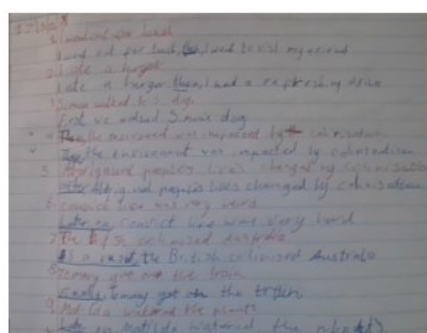 I went out for lunch
I went out for lunch, then, I went to visit my friend
2. I ate a burger
I ate a burger then, I had a refreshing drink
3. Simone walked her dog
First we walked Simone dog
the enviroment was impacted by colonisation
the enviroment was impacted by colonisation
5. Aboriginal people's lives changed by colonisation
Aboriginal people's lives changed by colonisation
6. convict life was very hard
Later on convict life was very hard
7. The British colonised Australia
As a result, the British colonised Australia
8. Tommy got on the train
Finally, Tommy got on the train
9. Matilda watered the plants
Matilda watered the plants